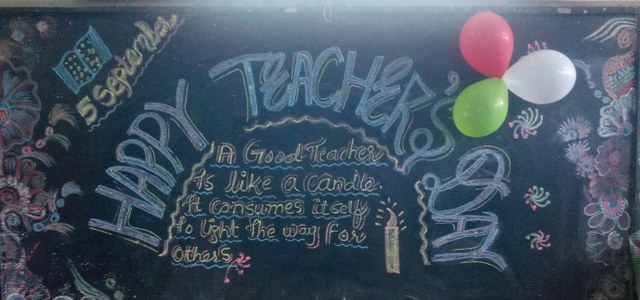 5 September
HAPPY TEACHER'S DAY
A Good Teacher
Is like a candle
It consumes itself
to light the way for
others